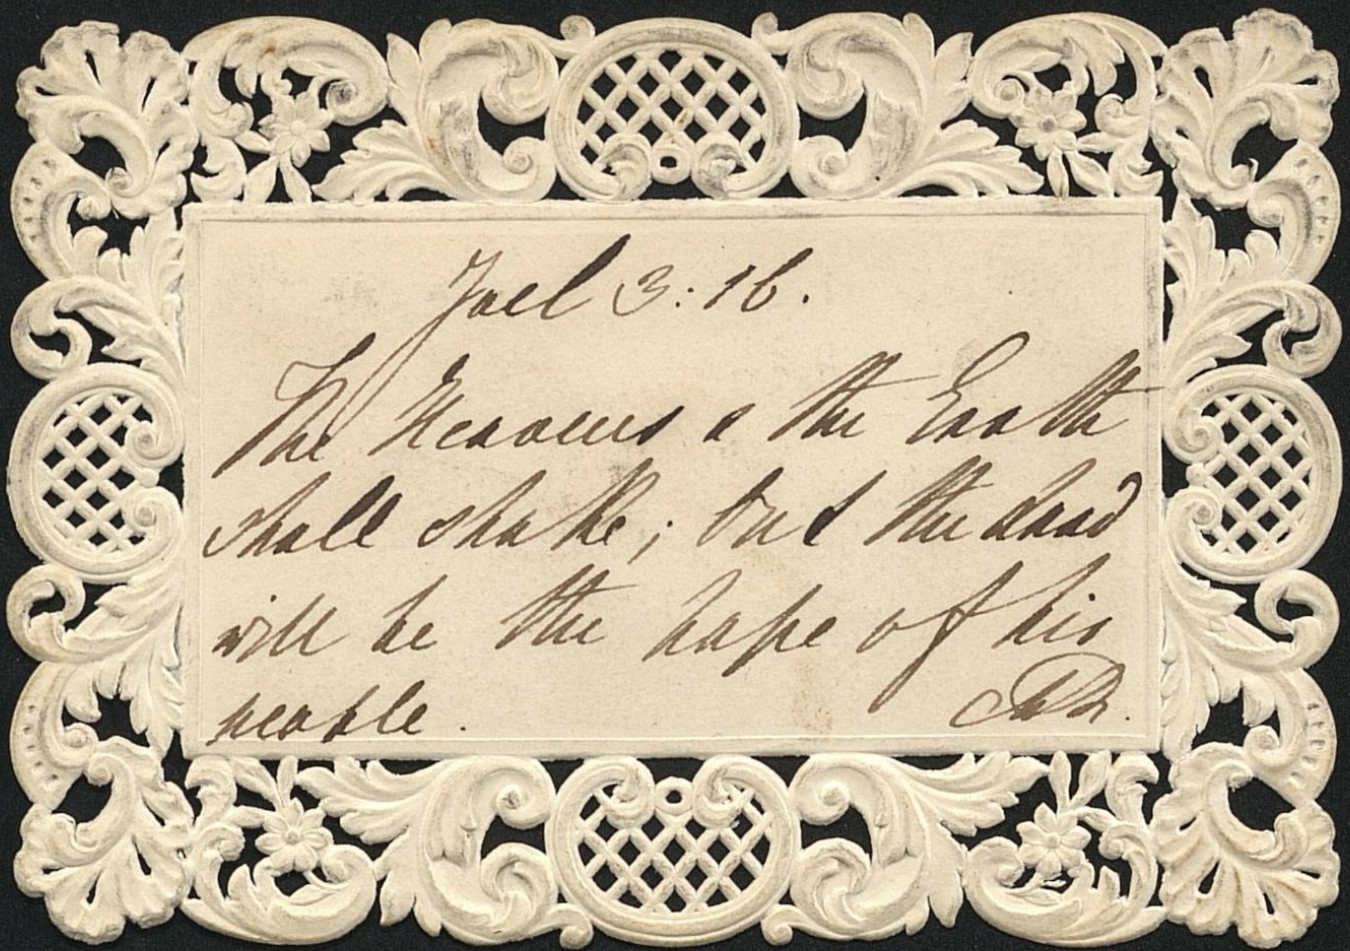 Joel 3:16.
The Heavens & the Earth
shall shake; but the Lord
will be the hope of his
people.